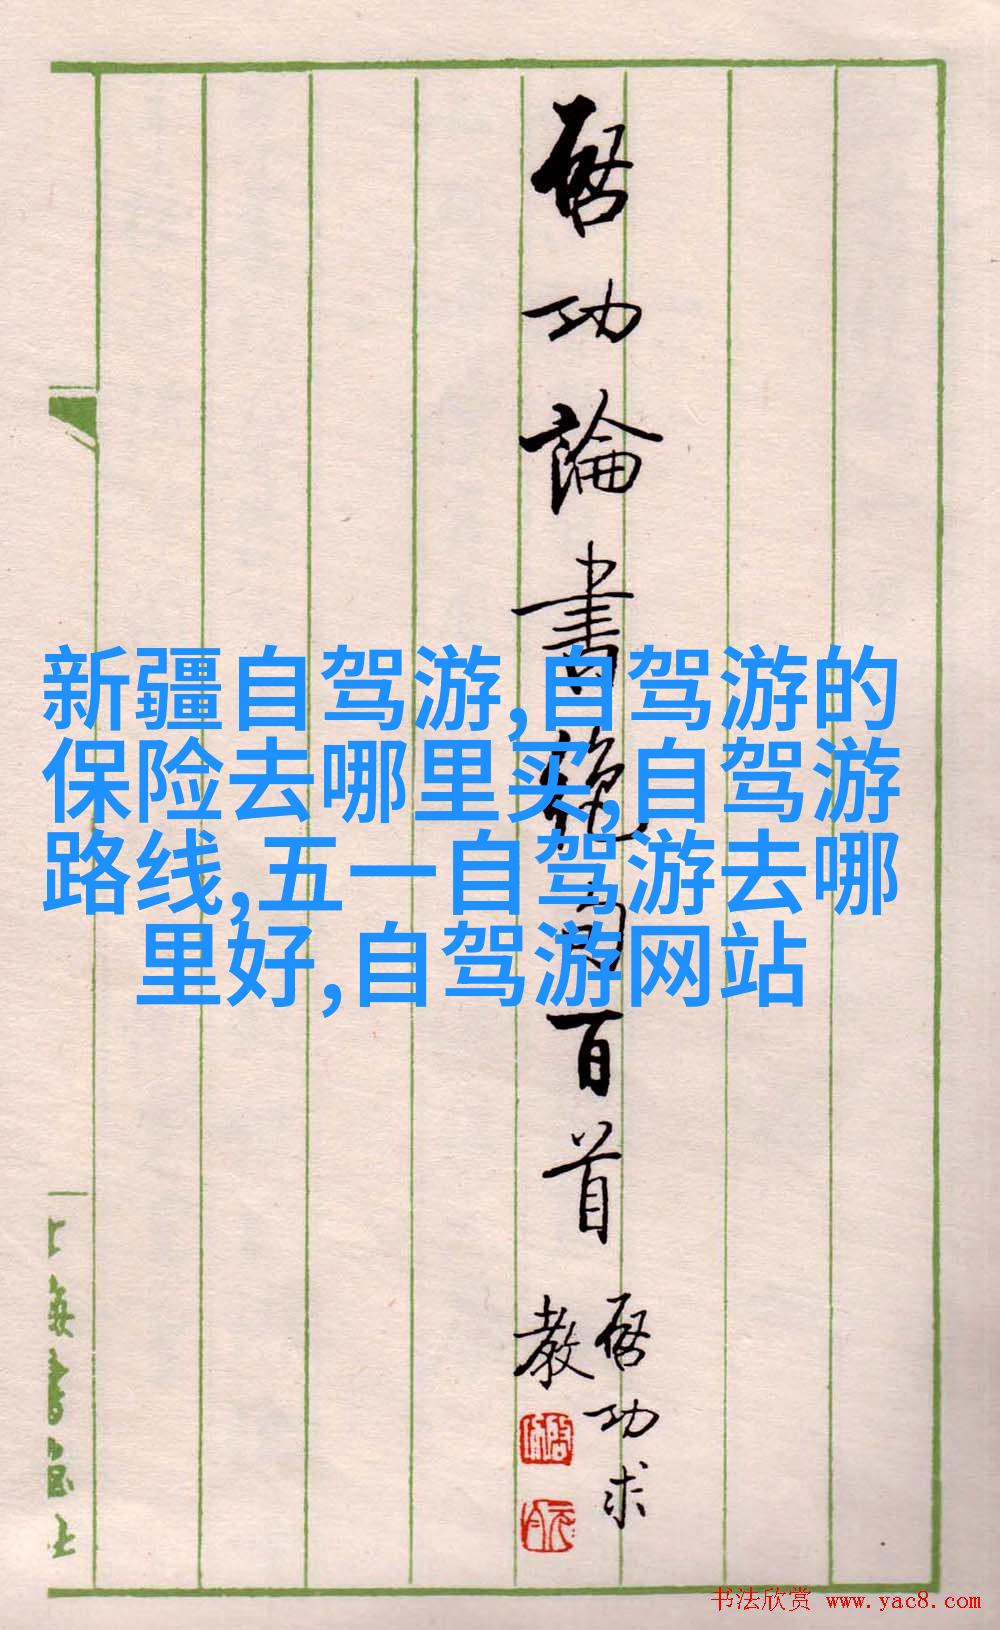 启功論書絶句百首
启功求
教
新疆自驾游,自驾游的
保险去哪里买,自驾游
路线,五一自驾游去哪
里好,自驾游网站
上海書畫社
书法欣赏 www.yac8.com